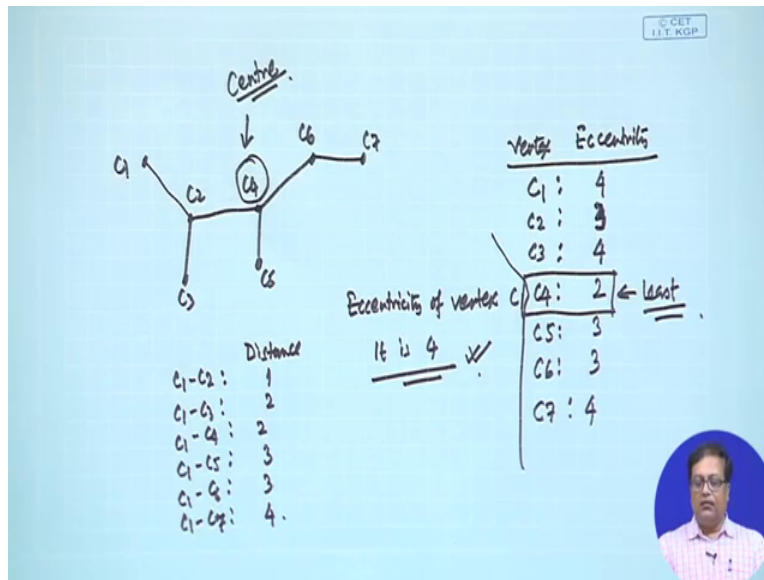 © CET
I.I.T. KGP
Centre.
C1
C2
C3
C4
C5
C6
C7
Vertex Eccentricity
C1 : 4
C2 : 3
C3 : 4
C4 : 2 ← Least
C5 : 3
C6 : 3
C7 : 4
Eccentricity of vertex C1
It is 4
Distance
C1-C2 : 1
C1-C3 : 2
C1-C4 : 2
C1-C5 : 3
C1-C6 : 3
C1-C7 : 4.